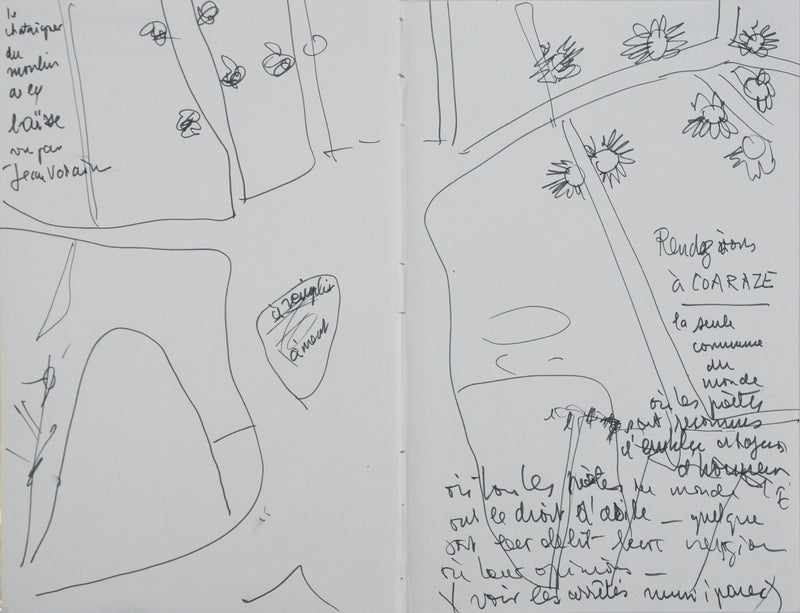 le
chataigner
du
moulin
avec
vu par
Jean
à remplir
Rendez-vous
à COARAZE
la seule
commune
du
monde
où les poètes
sont reconnus
d'emblée citoyens
d'honneur
où tous les poètes du monde
ont le droit d'asile — quelque
soit leur religion
où leurs opinions —
(voir les arrêtés municipaux)